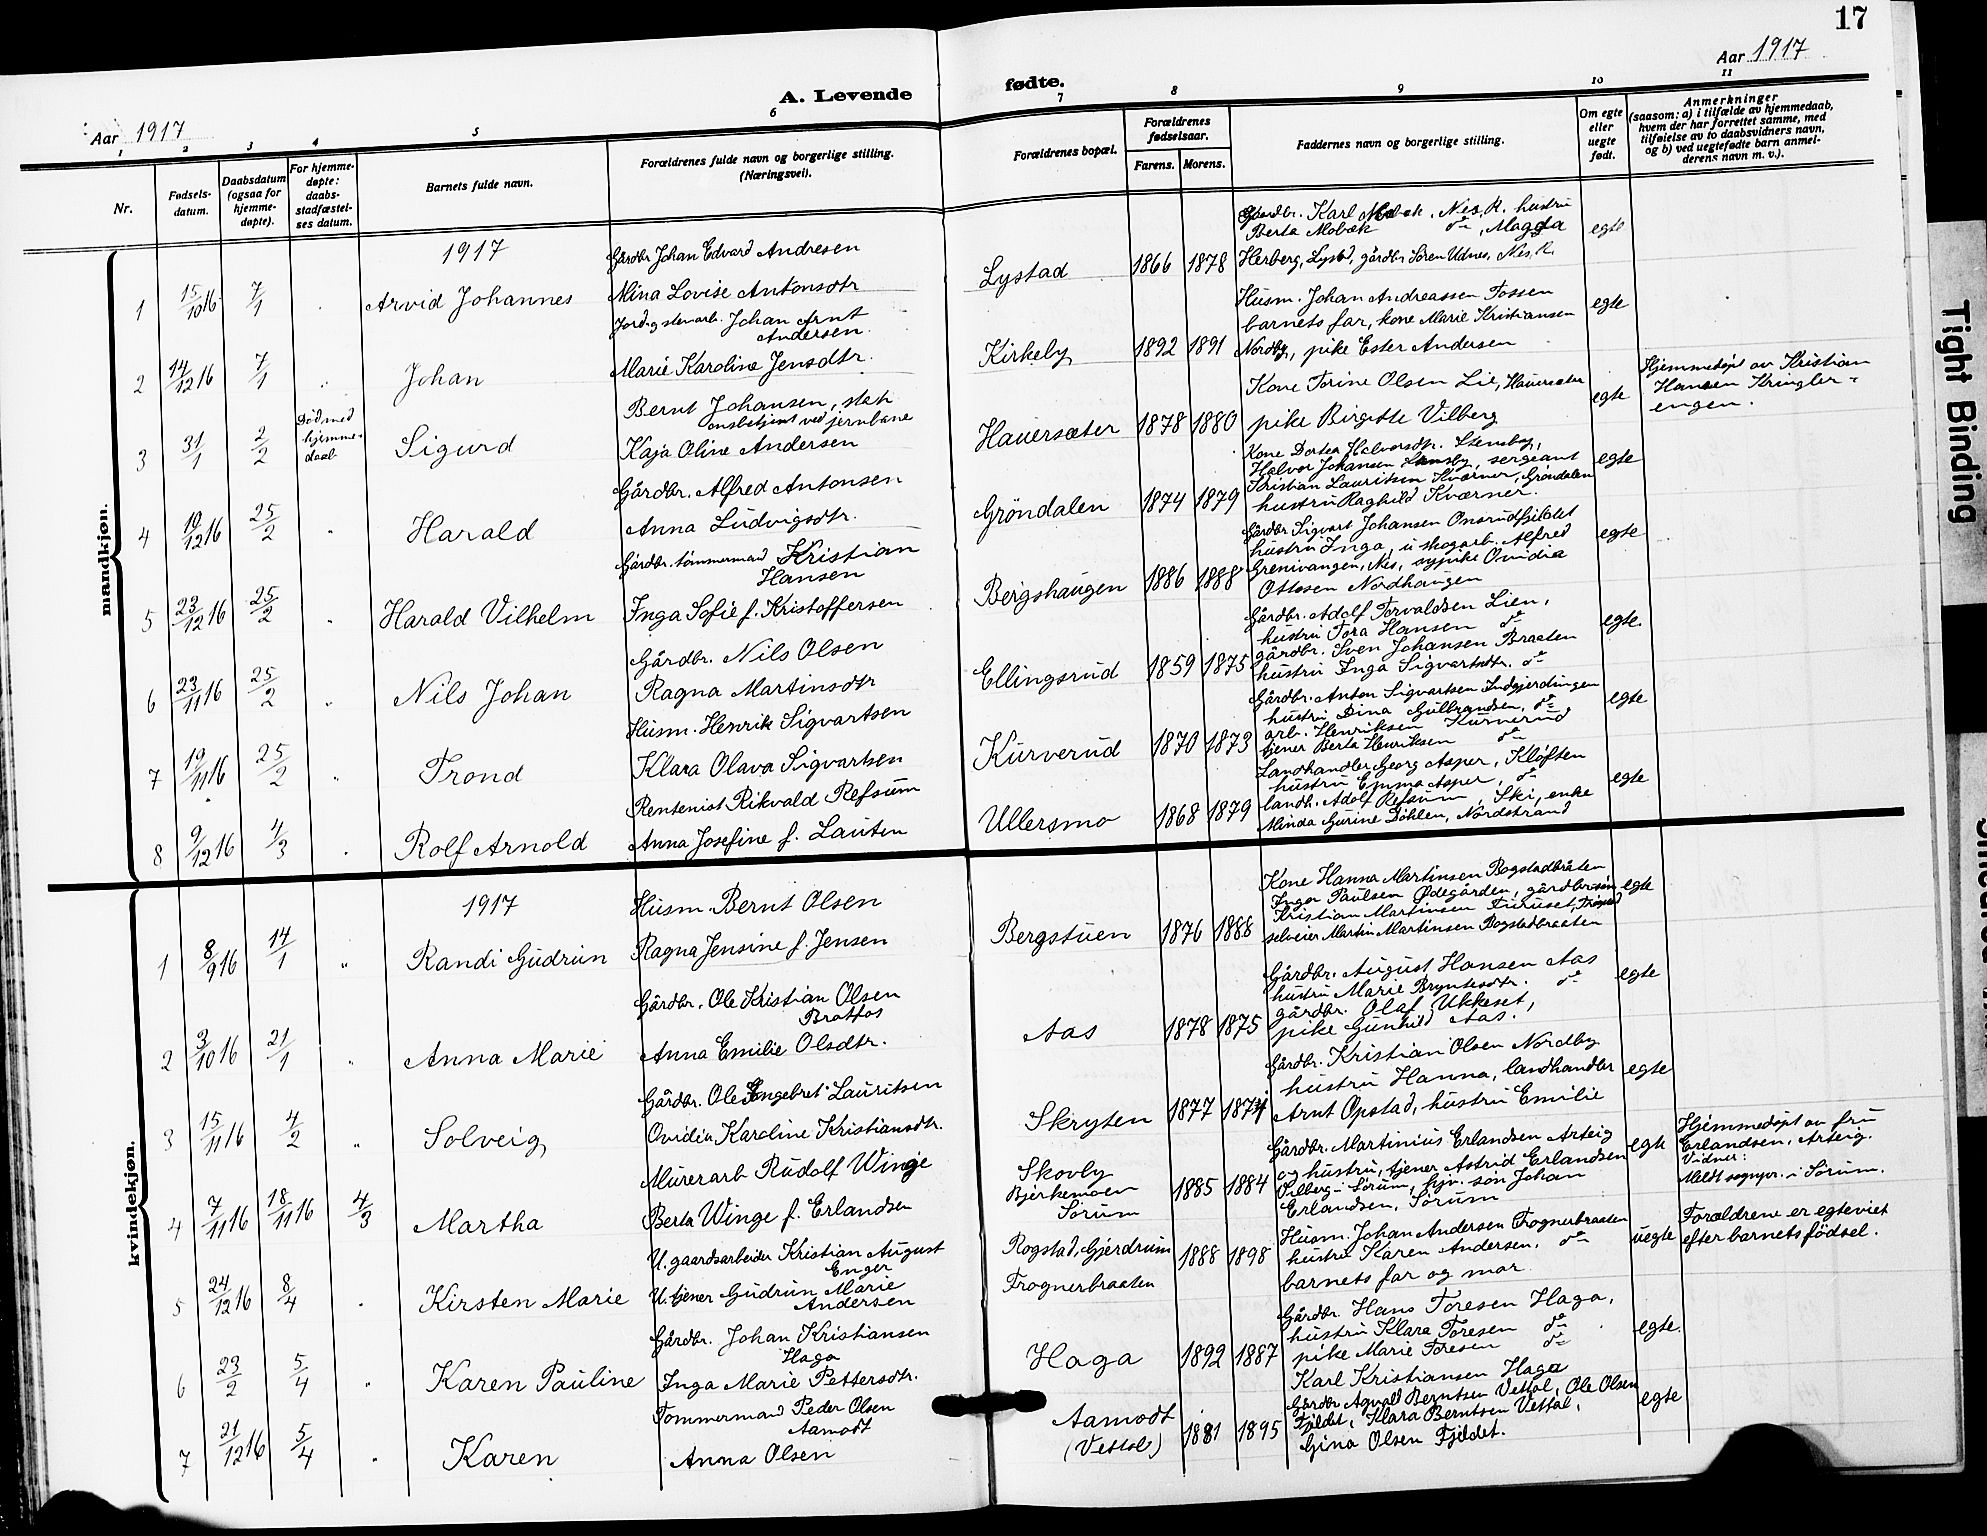 17
Aar 1917
A. Levende fødte.
Aar 1917
1 2 3 4 5 6 7 8 9 10 11
Nr.
Fødsels-
datum.
Daabsdatum
(ogsaa for
hjemme-
døpte).
For hjemme-
døpte:
daabs-
stadfæstel-
ses datum.
Barnets fulde navn.
Forældrenes fulde navn og borgerlige stilling.
(Næringsvei).
Forældrenes bopæl.
Forældrenes
fødselsaar.
Farens. Morens.
Faddernes navn og borgerlige stilling.
Om egte
eller
uegte
født.
Anmerkninger
(saasom: a) i tilfælde av hjemmedaab,
hvem der har forrettet samme, med
tilføielse av to daabsvidners navn,
og b) ved uegtefødte barn anmel-
derens navn m. v.).
mandkjøn.
1917
1 15/10 16 7/1 Arvid Johannes
Gårdbr. Johan Edvard Andresen
Mina Lovise Antonsdtr
Lystad 1866 1878
Gårdbr. Karl Mobæk, Nes, R. hustru
Berta Mobæk do, Magda
Herberg, Lystd, gårdbr Søren Udnes, Nes, R.
egte
2 14/12 16 7/1 Johan
Jord. og stenarb. Johan Arnt
Andersen.
Marie Karoline Jensdtr.
Kirkeby 1892 1891
Husm. Johan Andreassen Fossen
barnets far, kone Marie Kristiansen
Nordby, pike Ester Andersen
egte
3 31/1 2/2 Død med
hjemme-
daab
Sigurd
Bernt Johansen, stati
onsbetjent ved jernbane
Kaja Oline Andersen
Hauersæter 1878 1880
Kone Torine Olsen Lie, Hauersæter
pike Birgitte Vilberg
egte
Hjemmedøpt av Kristian
Hansen Kringler-
engen.
4 19/12 16 25/2 Harald
Gårdbr. Alfred Antonsen
Anna Ludvigsdtr.
Grøndalen 1874 1879
Kone Dortea Halvorsdtr. Stensby,
Halvor Johansen Stensby, sergeant
Kristian Lauritsen Kværner, Grøndalen
hustru Raghild Kværner.
egte
5 23/12 16 25/2 Harald Vilhelm
Gårdbr. tømmermand Kristian
Hansen
Inga Sofie f. Kristoffersen
Bergshaugen 1886 1888
Gårdbr Sigvart Johansen Onsrudfjeldet
hustru Inga, u. skogarb. Alfred
Grenivangen, Nes, sypike Ovidia
Ottosen Nordhaugen
egte
6 23/11 16 25/2 Nils Johan
Gårdbr. Nils Olsen
Ragna Martinsdtr
Ellingsrud 1859 1875
Gårdbr. Adolf Torvaldsen Lien,
hustru Tora Hansen do
gårdbr. Sven Johansen Braaten
hustru Inga Sigvartsdtr. do
egte.
7 19/11 16 25/2 Trond
Husm. Henrik Sigvartsen
Klara Olava Sigvartsen
Kurverud 1870 1873
Gårdbr. Anton Sigvartsen Indgjerdingen
hustru Dina Gulbrandsen, do
arb. Henriksen Kurverud
tjener Berta Henriksen do
egte
8 9/12 16 4/3 Rolf Arnold
Rentenist Rikvald Refsum
Anna Josefine f. Lauten
Ullersmo 1868 1879
Landhandler Georg Asper, Kløften
hustru Emma Asper, do
landh. Adolf Refsum, Ski, enke
Minda Gurine Døhlen, Nordstrand
egte
kvindekjøn.
1917
1 8/9 16 14/1 Randi Gudrun
Husm. Bernt Olsen
Ragna Jensine f. Jensen
Bergstuen 1876 1888
Kone Hanna Martinsen Bogstadbråten
Inga Paulsen Ødegården, gårdbr.søn
Kristian Martinsen Furuset,
selveier Martin Martinsen Bogstadbraaten
egte
2 3/10 16 21/1 Anna Marie
Gårdbr. Ole Kristian Olsen
Brattås
Anna Emilie Olsdtr.
Aas 1878 1875
Gårdbr. August Hansen Aas
hustru Marie Bryntesdtr. do
gårdbr. Olaf Ukkeset,
pike Gunhild Aas.
egte
3 15/11 16 4/2 Solveig
Gårdbr. Ole Engebret Lauritsen
Ovidia Karoline Kristiansdtr.
Skryten 1877 1874
Gårdbr. Kristian Olsen Nordby
hustru Hanna, landhandler
Arnt Opstad, hustru Emilie
egte
4 7/11 16 18/11 16 4/3 Martha
Murerarb Rudolf Winge
Berta Winge f. Erlandsen
Skovly
Bjerkemoen
Sørum
1885 1884
Gårdbr. Martinius Erlandsen Arteig
og hustru, tjener Astrid Erlandsen
Vilberg i Sørum, hjv. søn Johan
Erlandsen, Sørum
egte
Hjemmedøpt av fru
Erlandsen, Arteig.
Vidner:
Meldt sognepr. i Sørum.
5 24/12 16 8/4 Kirsten Marie
U. gaardsarbeider Kristian August
Enger
U. tjener Gudrun Marie
Andersen
Rogstad, Gjerdrum
Trognerbraaten
1888 1898
Husm. Johan Andersen Trognerbraaten
hustru Karen Andersen, do
barnets far og mor.
uegte
Forældrene er egteviet
efter barnets fødsel.
6 23/2 5/4 Karen Pauline
Gårdbr. Johan Kristiansen
Haga
Inga Marie Pettersdtr.
Haga 1892 1887
Gårdbr. Hans Toresen Haga,
hustru Klara Toresen do
pike Marie Toresen do
Karl Kristiansen Haga
egte.
7 21/12 16 5/4 Karen
Tommermand Peder Olsen
Aamodt
Anna Olsen
Aamodt
(Vettal)
1881 1895
Gårdbr. Agvald Berntsen Vettal, Ole Olsen
Fjeldet, Klara Berntsen Vettal,
Gina Olsen Fjeldet.
egte
Tight Binding